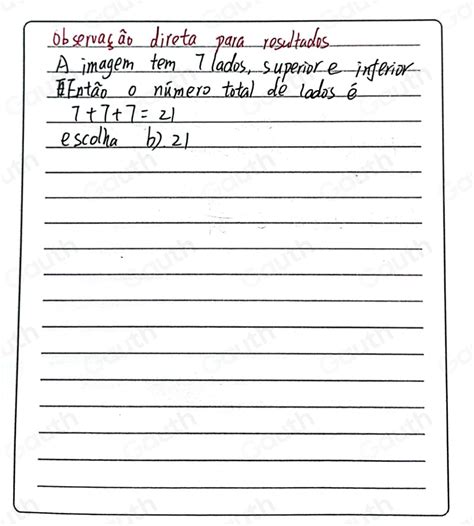 Observação direta para resultados
A imagem tem 7 lados, superior e inferior
Então o número total de lados é
7+7+7=21
escolha b) 21